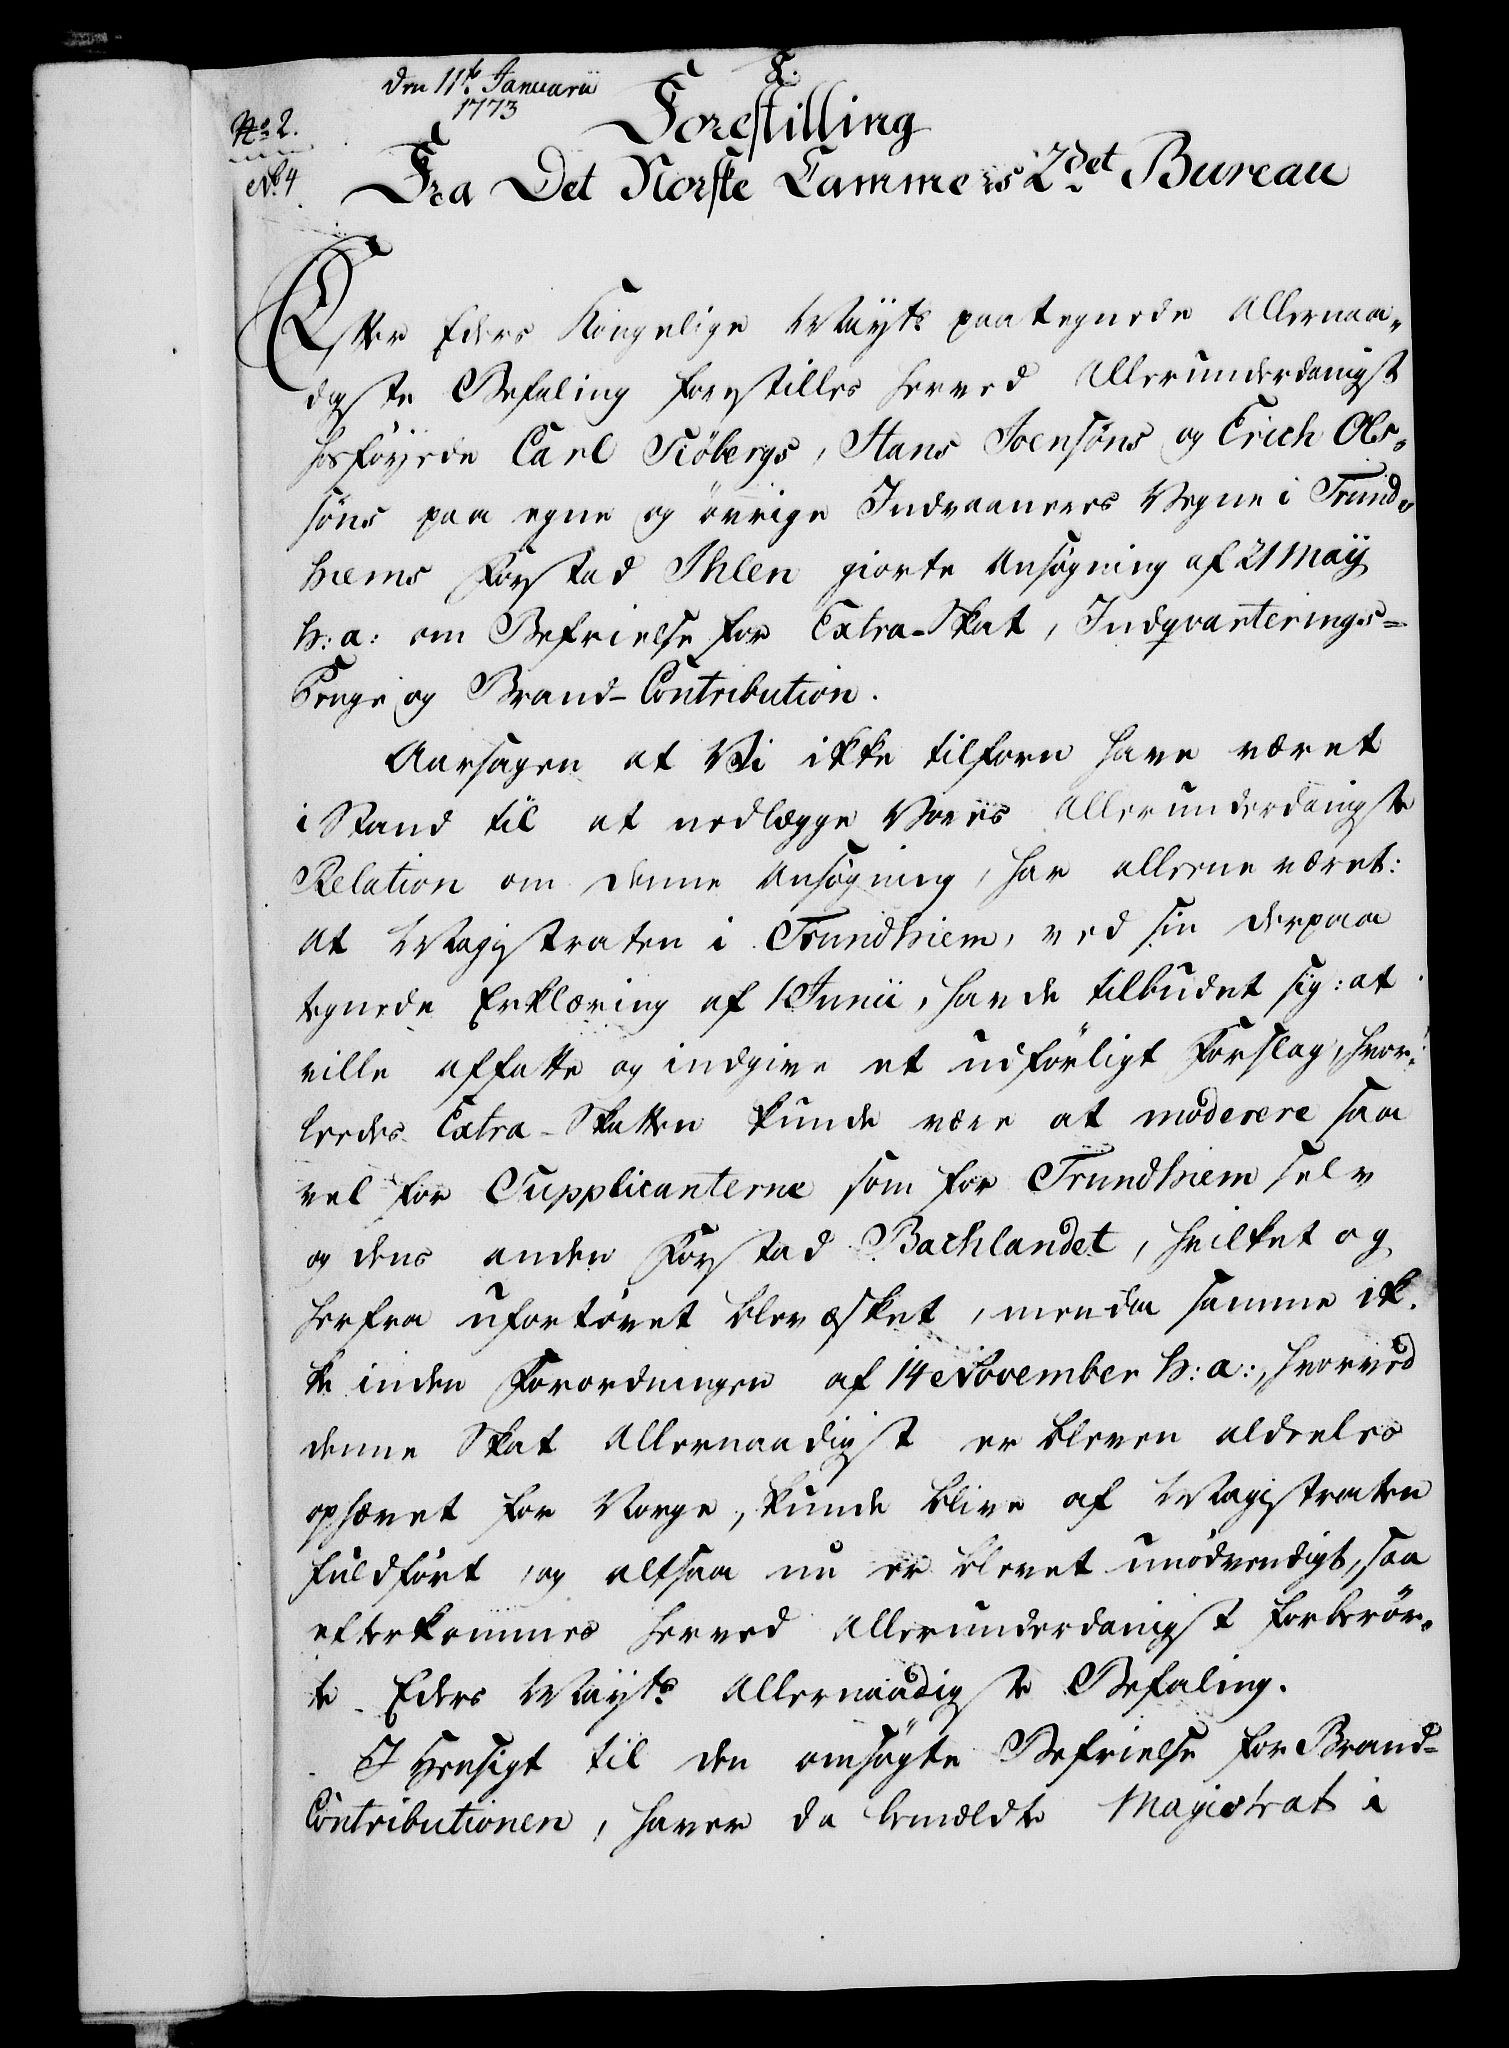 Den 11te Januarii
1773
No 2.
No 4.
F.
Forestilling
Fra Det Norske Cammers 2det Bureau
Efter Eders Kongelige Mayts paategnede Allernaa-
digste Befaling forestilles herved Allerunderdanigst
hosføyede Carl Siöbergs, Hans Joensöns og Erich Ols-
söns paa egne og övrige Indvaaneres Vegne i Trund-
hiems Forstad Ihlen giorte Ansögning af 21 Maÿ
h: a: om Befrielse for Extra-Skat, Indqvarterings-
Penge og Brand-Contribution.
Aarsagen at Vi ikke tilforn have været
i Stand til at nedlægge Voris Allerunderdanigste
Relation om denne Ansögning, har alleene været:
at Magistraten i Trundhiem, ved sin derpaa
tegnede Erklæring af 1 Junii, havde tilbudet sig: at
ville affatte og indgive et udförligt Forslag, hvor-
ledes Extra-Skatten kunde være at moderere saa
vel for Supplicanterne som for Trundhiem selv
og dens anden Forstad Bachlandet, hvilket og
herfra ufortövet blev æsket, men da samme ik-
ke inden Forordningen af 14 November h: a:, hvorved
denne Skat Allernaadigst er bleven aldeeles
ophævet for Norge, kunde blive af Magistraten
fuldfört, og altsaa nu er blevet unödvendigt, saa
efterkommes herved Allerunderdanigst forberör-
te Eders Mayts Allernaadigste Befaling.
I Hensigt til den omsögte Befrielse for Brand-
Contributionen, haver da bemældte Magistrat i